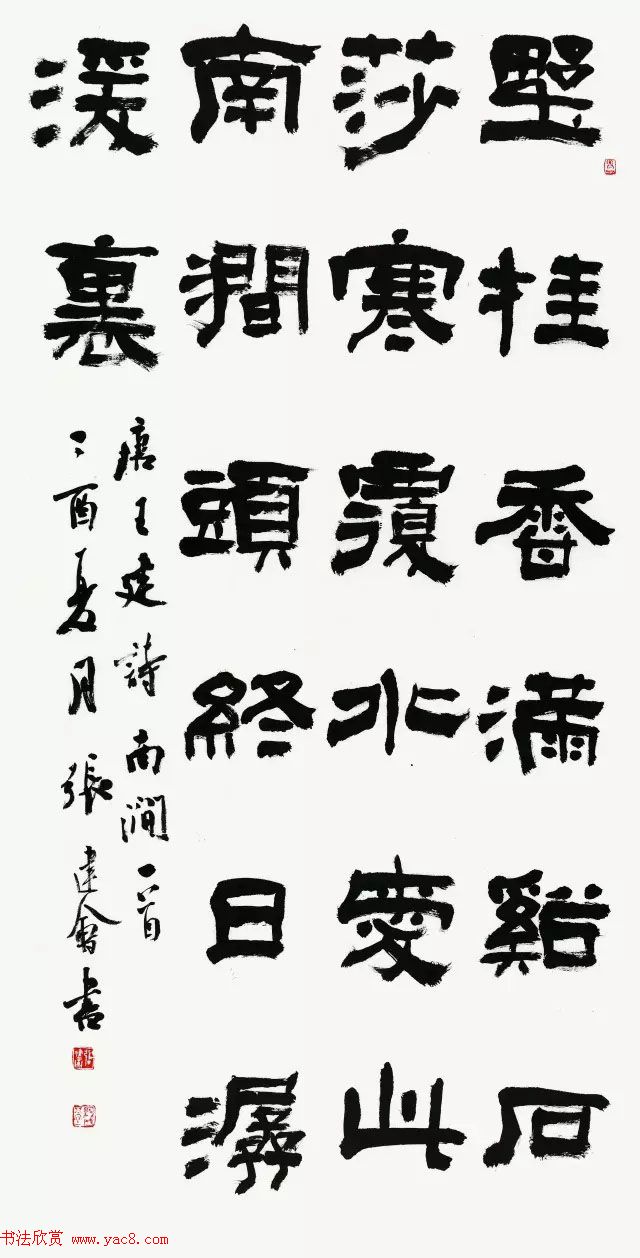 野桂香滿谿石
莎寒覆水愛此
南澗頭終日潺
湲裏
唐王建詩南澗一首
丁酉夏月張建會書
书法欣赏 www.yac8.com